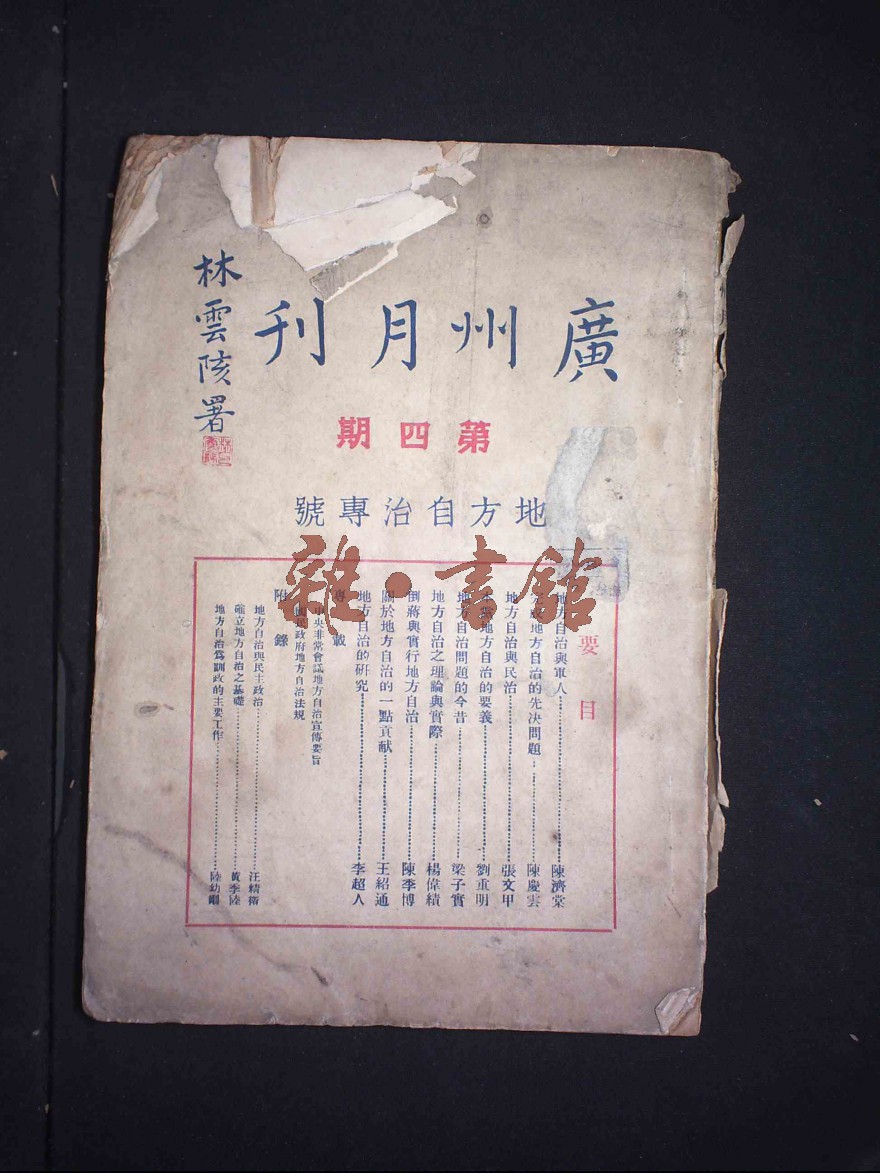 廣州月刊
林雲陔署
第四期
地方自治專號
雜·書館
要目
地方自治與軍人 陳濟棠
地方自治的先決問題 陳慶雲
地方自治與民治 張文甲
地方自治的要義 劉重明
地方自治問題的今昔 梁子實
地方自治之理論與實際 楊偉績
倒蔣與實行地方自治 陳季博
關於地方自治的一點貢獻 王紹通
地方自治的研究 李超人
專載
中央非常會議地方自治宣傳要旨
國民政府地方自治法規
附錄
地方自治與民主政治 汪精衛
確立地方自治之基礎 黃季陸
地方自治爲訓政的主要工作 陸幼剛